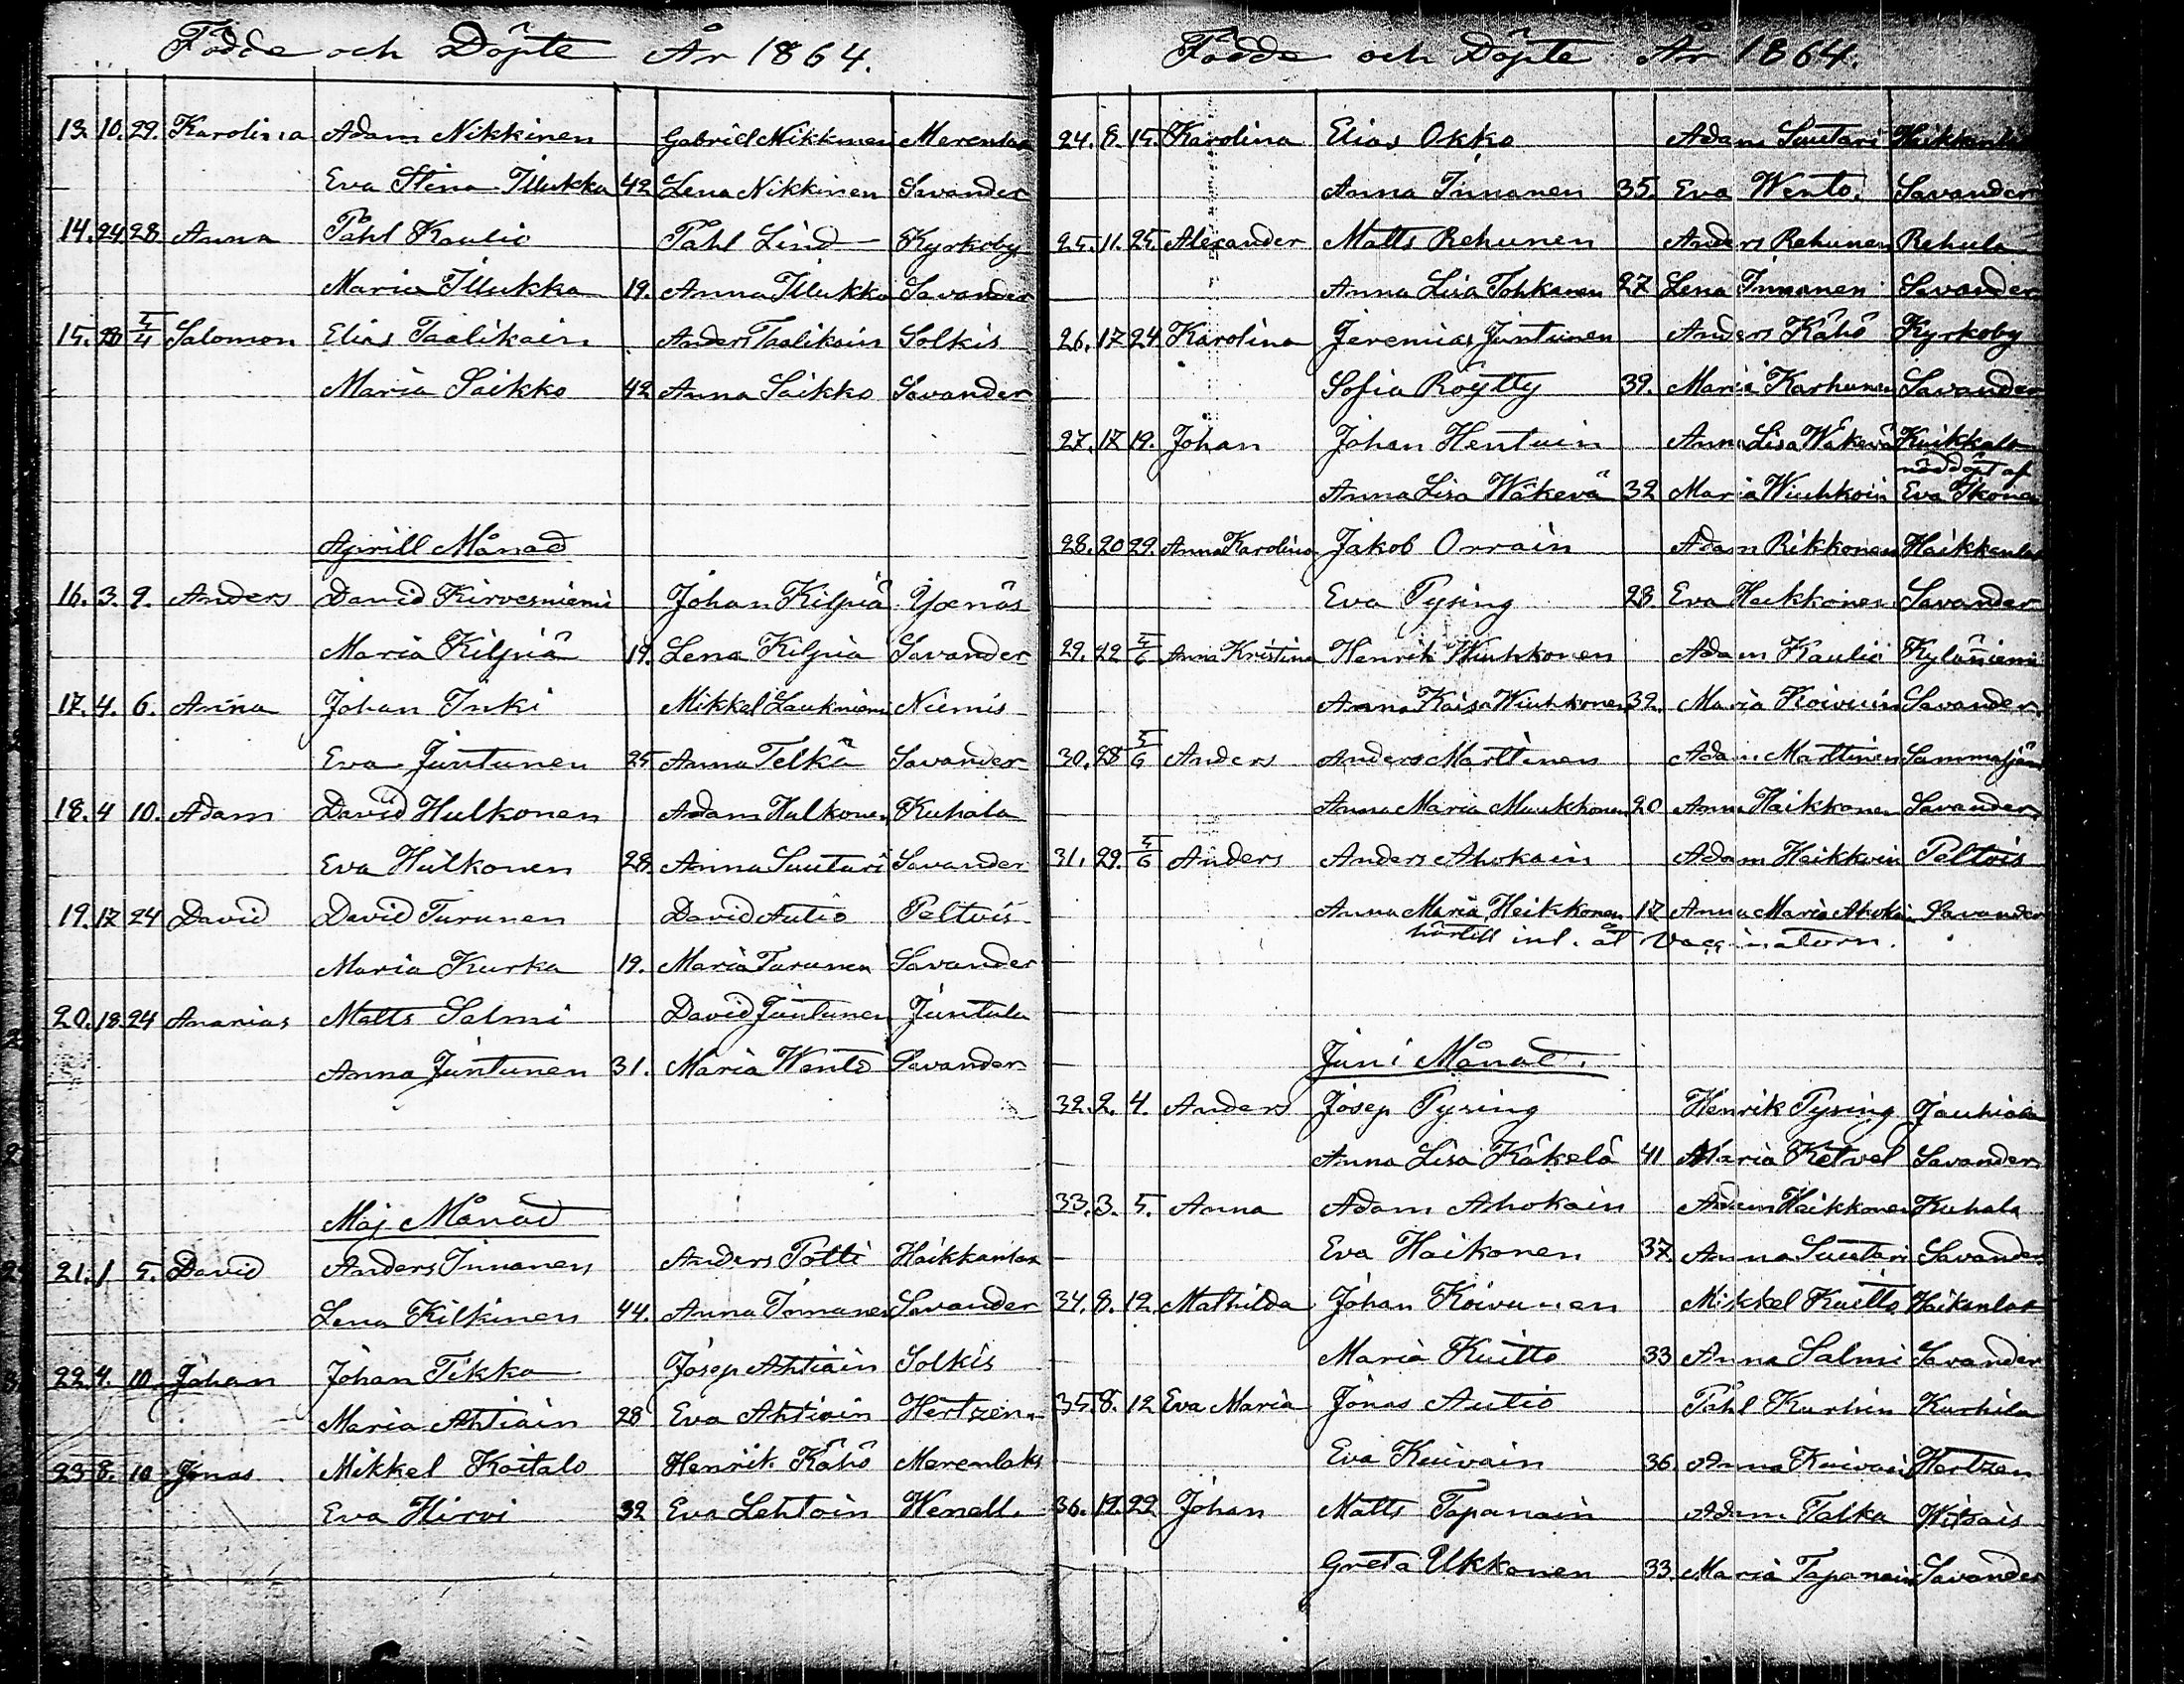 Födde och Döpte År 1864.
13. 10. 29. Karolina Adam Nikkinen Gabriel Nikkinen Merenlax
Eva Stina Illukka 42 Lena Nikkinen Savander
14. 24 28 Anna Påhl Kaulio Påhl Lind Kyrkoby
Maria Illukka 19. Anna Illukka Savander
15. 28 5/4 Salomon Elias Taalikain Anders Taalikain Solkis
Maria Saikko 42 Anna Saikko Savander
Aprill Månad
16. 3. 9. Anders David Kirvesniemi Johan Kilpiä Yxenäs
Maria Kilpiä 19. Lena Kilpiä Savander
17. 4. 6. Anna Johan Inki Mikkel Laukniemi Niemis
Eva Juntunen 25 Anna Telkä Savander
18. 4 10. Adam David Hulkonen Adam Hulkonen Kuhala
Eva Hulkonen 28 Anna Suutari Savander
19. 17 24 David David Turunen David Autio Peltois
Maria Kurka 19. Maria Turunen Savander
20. 18 24 Ananias Matts Salmi David Juntunen Juntula
Anna Juntunen 31. Maria Wento Savander
Maj Månad
21. 1 5. David Anders Innanen Anders Potti Haikkanlax
Lena Kilkinen 44. Anna Innanen Savander
22. 4. 10 Johan Johan Tikka Josep Ahtiain Solkis
Maria Ahtiain 28 Eva Ahtiain Hertzen.
23 8. 10 Jonas Mikkel Koitalo Henrik Kähö Merenlaks
Eva Hirvi 32 Eva Lehtoin Wenell.
Födde och Döpte År 1864.
24. 8. 15. Karolina Elias Okko Adam Suutari
Anna Innanen 35. Eva Wento. Savander
25. 11. 25. Alexander Matts Rehunen Anders Rehunen Rehula
Anna Lisa Tohkanen 27 Lena Innanen Savander
26. 17 24 Karolina Jeremias Juntunen Anders Kähö Kyrkoby
Sofia Röytty 39. Maria Karhunen Savander
27. 17 19. Johan Johan Hentuin Anna Lisa Wäkevä Kuikkala
nöddöpt af
Anna Lisa Wäkevä 32 Maria Wiuhkoin Eva Ikonen
28. 20 29. Anna Karolina Jakob Orrain Adam Rikkonen Haikkanlax
Eva Pysing 28 Eva Heikkonen Savander
29. 22 5/6 Anna Kristina Henrik Wiuhkonen Adam Kaulio Kyläniemi
Anna Kaisa Wiuhkonen 32. Maria Koivuin Savander.
30. 28 5/6 Anders Anders Marttinen Adam Marttinen
Anna Maria Muukkonen 20 Anna Haikkonen Savander
31. 29. 5/6 Anders Anders Ahokain Adam Heikkoin Peltois
Anna Maria Heikkonen 17 Anna Maria Ahokain Savander
härtill inl. åt Vaccinatorn.
Juni Månad.
32. 2. 4. Anders Josep Pysing Henrik Pysing Jauhiala
Anna Lisa Käkelä 41 Maria Ketvel Savander
33. 3. 5. Anna Adam Ahokain Adam Haikkonen Kuhala
Eva Haikonen 37. Anna Suutari Savander.
34. 8. 12. Mathilda Johan Koivunen Mikkel Kuitto Haikanlax
Maria Kuitto 33 Anna Salmi Savander
35. 8. 12 Eva Maria Jonas Autio Påhl Kurhin Kurhila
Eva Kuivain 36. Anna Kuivain Hertzen
36. 12. 22 Johan Matts Tapanain Adam Talka Witsais
Greta Ukkonen 33. Maria Tapanain Savander